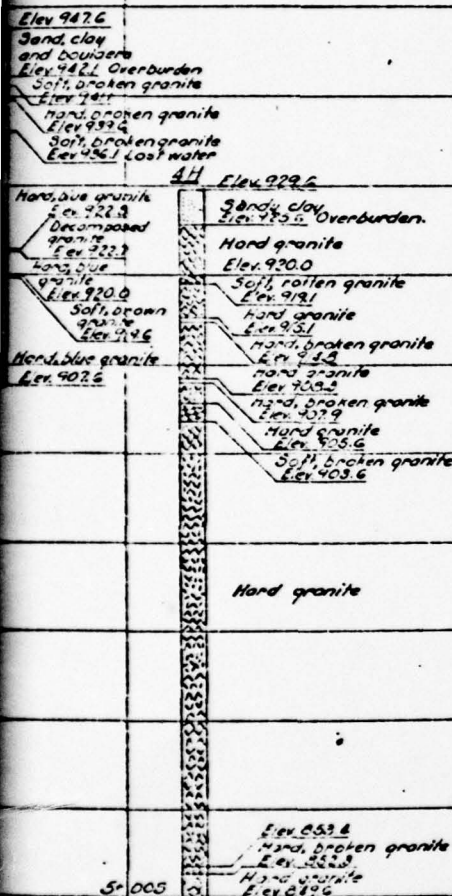 Elev 947.6
Sand, clay
and boulders
Elev 942.1 Overburden
Soft, broken granite
Elev 941.1
Hard, broken granite
Elev 939.6
Soft, broken granite
Elev 936.1 Lost water
Hard, blue granite
Elev 922.9
Decomposed
granite
Elev 922.7
Hard, blue
granite
Elev 920.0
Soft, brown
granite
Elev 919.6
Hard, blue granite
Elev. 907.6
4H
Elev 929.6
Sandy clay
Elev 925.6 Overburden.
Hard granite
Elev 920.0
Soft, rotten granite
Elev 919.1
Hard granite
Elev 915.1
Hard, broken granite
Elev
Hard granite
Elev 908.9
Hard, broken granite
Elev 907.9
Hard granite
Elev. 905.6
Soft, broken granite
Elev 903.6
Hard granite
Elev 853.4
Hard, broken granite
Elev 852.9
Hard granite
Elev 849.6
5+005